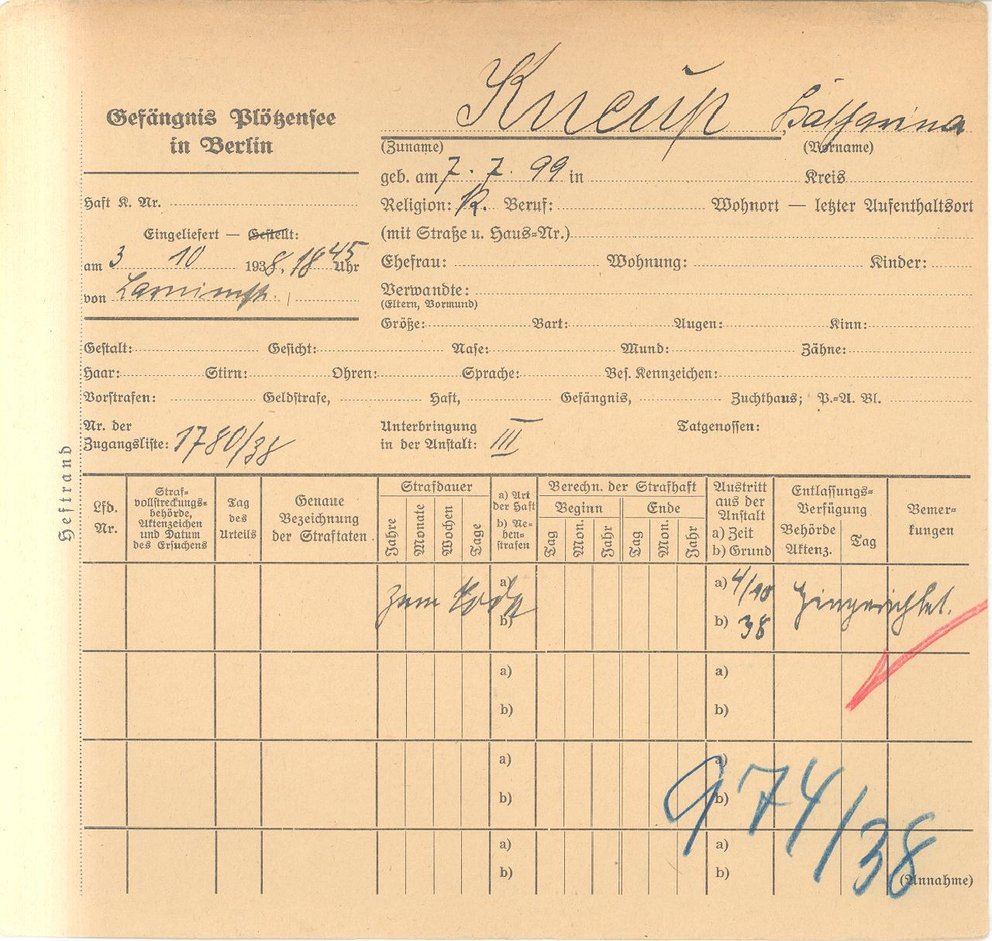 Gefängnis Plötzensee
in Berlin
Kneup Katharina
(Zuname) (Vorname)
geb. am 7. 7. 99 in Kreis
Haft K. Nr.
Religion: K. Beruf: Wohnort — letzter Aufenthaltsort
Eingeliefert — Gestellt:
(mit Straße u. Haus-Nr.)
am 3 10 1938. 18 45 Uhr
Ehefrau: Wohnung: Kinder:
von Barnimstr.
Verwandte:
(Eltern, Vormund)
Größe: Bart: Augen: Kinn:
Gestalt: Gesicht: Nase: Mund: Zähne:
Haar: Stirn: Ohren: Sprache: Bes. Kennzeichen:
Vorstrafen: Geldstrafe, Haft, Gefängnis, Zuchthaus; P.-A. Bl.
Nr. der
Zugangsliste: 1780/38
Unterbringung
in der Anstalt: III
Tatgenossen:
Heftrand
Lfd.
Nr.
Straf-
vollstreckungs-
behörde,
Aktenzeichen
und Datum
des Ersuchens
Tag
des
Urteils
Genaue
Bezeichnung
der Straftaten
Strafdauer
Jahre Monate Wochen Tage
a) Art
der Haft
b) Ne-
ben-
strafen
Berechn. der Strafhaft
Beginn Ende
Tag Mon. Jahr Tag Mon. Jahr
Austritt
aus der
Anstalt
a) Zeit
b) Grund
Entlassungs-
Verfügung
Behörde
Aktenz.
Tag
Bemer-
kungen
zum Tode a) a) 4/10 Hingerichtet.
b) b) 38
a) a)
b) b)
a) a)
b) b)
974/38
a) a)
b) b)
(Annahme)